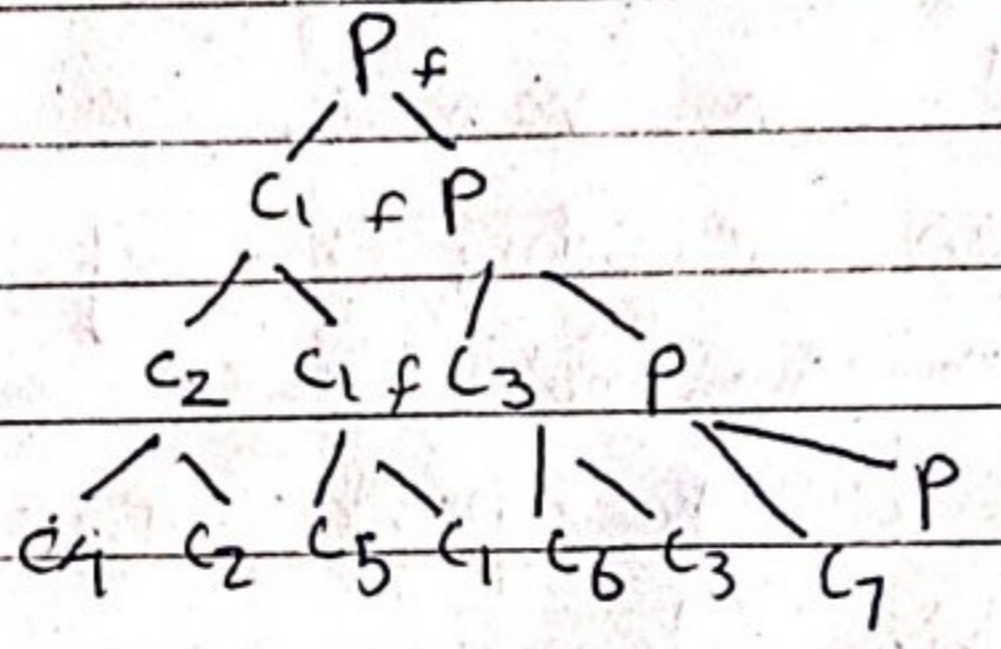 P f
C1 f P
C2 C1 f C3 P
C4 C2 C5 C1 C6 C3 C7 P